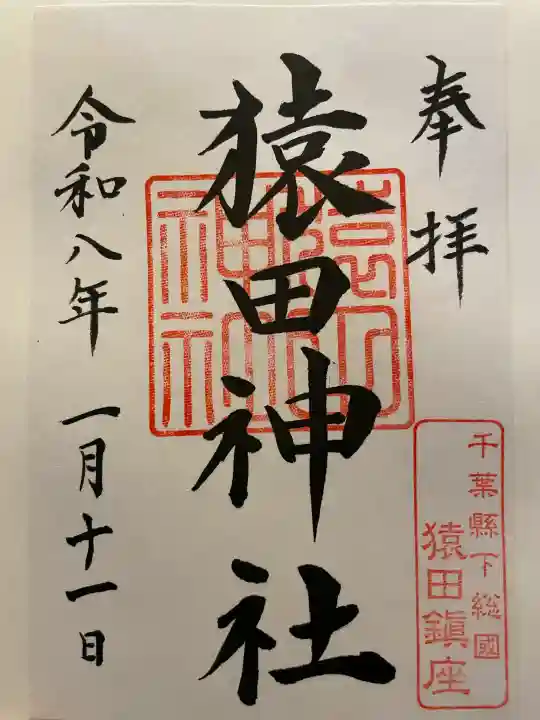 奉拝
千葉縣下総國
猿田鎮座
猿田神社
令和八年 一月十一日